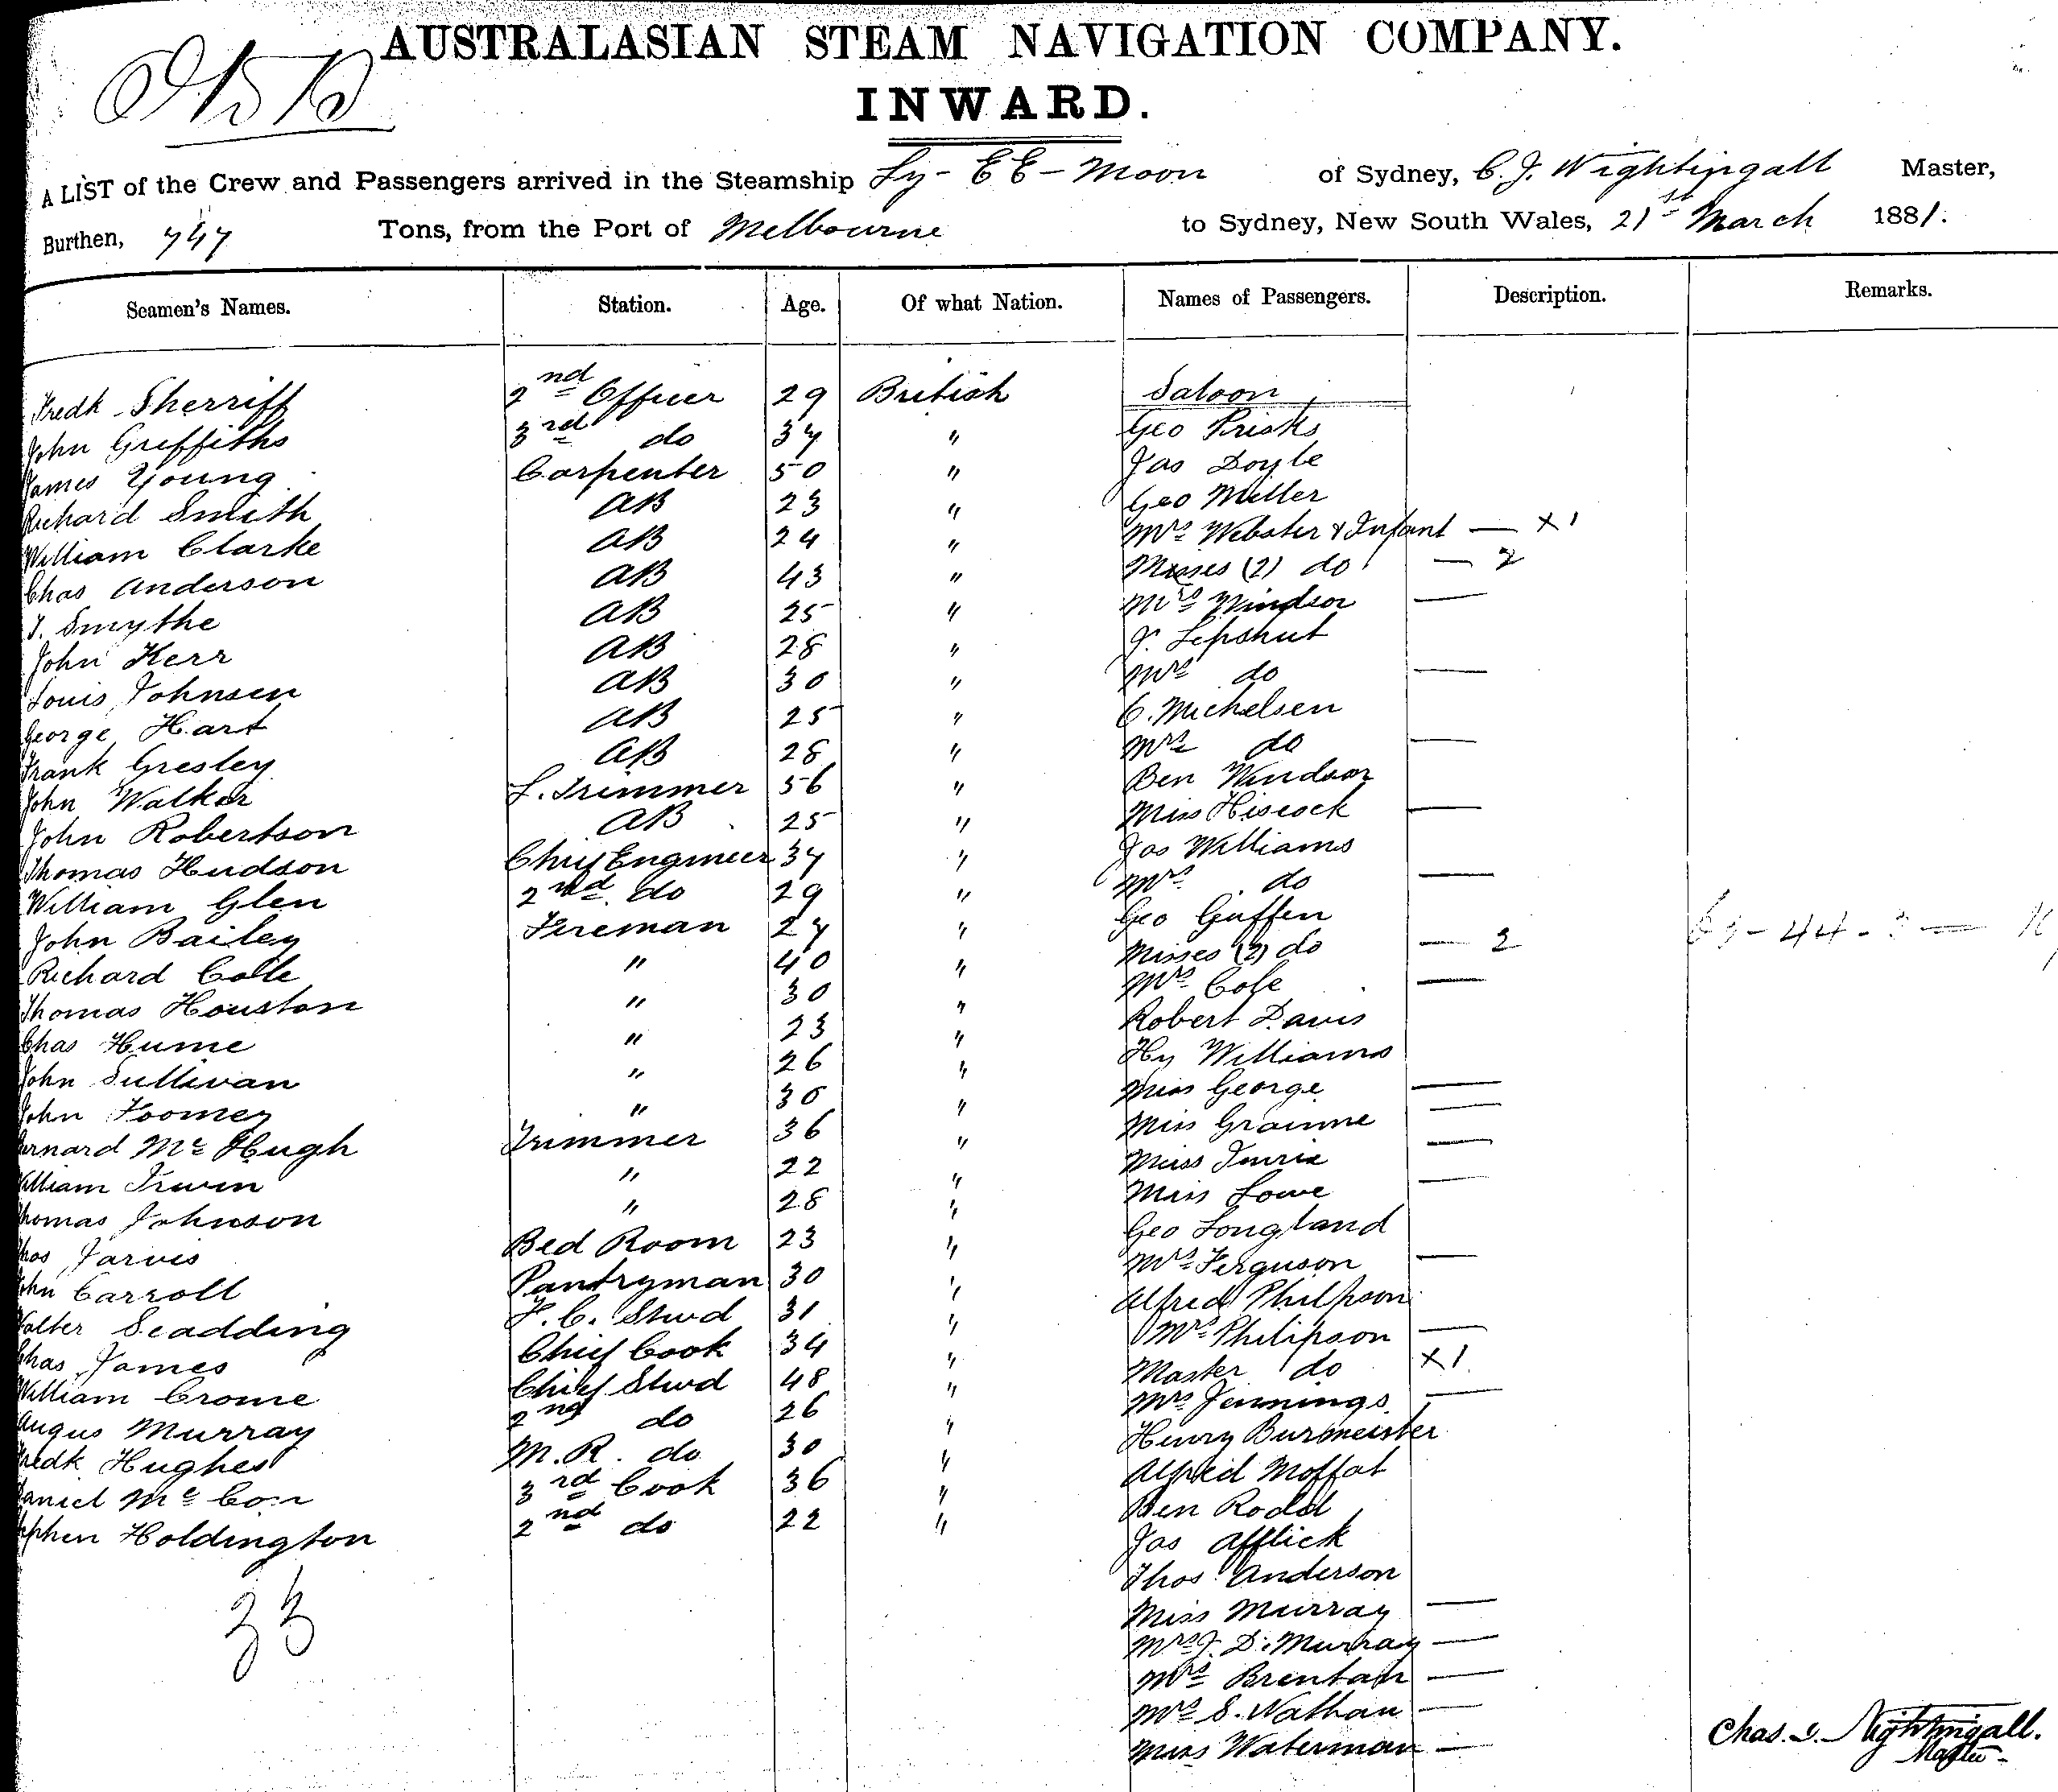 AUSTRALASIAN STEAM NAVIGATION COMPANY.
INWARD.
A LIST of the Crew and Passengers arrived in the Steamship Ly-EE-Moon of Sydney, C. J. Nightingall Master,
Burthen, 747 Tons, from the Port of Melbourne to Sydney, New South Wales, 21st March 1881.
Seamen's Names. Station. Age. Of what Nation. Names of Passengers. Description. Remarks.
Fredk Sherriff 2nd Officer 29 British Saloon
John Griffiths 3rd do 37 " Geo Prisks
James Young Carpenter 50 " Jas Doyle
Richard Smith AB 23 " Geo Miller
William Clarke AB 24 " Mrs Webster & Infant — X 1
Chas Anderson AB 43 " Misses (2) do — 2
J. Smythe AB 25 " Mrs Windsor —
John Kerr AB 28 " J. Lipshut
Louis Johnsen AB 30 " Mrs do —
George Hart AB 25 " C. Michelsen
Frank Gresley AB 28 " Mrs do —
John Walker L. Trimmer 56 " Ben Windsor
John Robertson AB 25 " Miss Hiscock —
Thomas Hudson Chief Engineer 37 " Jas Williams
William Glen 2nd do 29 " Mrs do —
John Bailey Fireman 27 " Geo Giffen
Richard Cole " 40 " Misses (2) do — 2
Thomas Houston " 30 " Mrs Cole —
Chas Hume " 23 " Robert Davis
John Sullivan " 26 " Hy Williams
John Toomey " 30 " Miss George —
Bernard McHugh Trimmer 36 " Miss Grainne —
William Irwin " 22 " Miss Imrie —
Thomas Johnson " 28 " Miss Lowe —
Thos Jarvis Bed Room 23 " Geo Longland
John Carroll Pantryman 30 " Mrs Ferguson —
Walter Scadding F. C. Stwd 31 " Alfred Philpson
Chas James Chief Cook 34 " Mrs Philipson —
William Crome Chief Stwd 48 " Master do X1
Angus Murray 2nd do 26 " Mrs Jennings —
Fredk Hughes M.R. do 30 " Henry Burmeister
Daniel Mc 3rd Cook 36 " Alfred Moffat
Stephen Holdington 2nd do 22 " Ben Rodd
Jas Afflick
Thos Anderson
33 Miss Murray —
Mrs J. D. Murray —
Mrs Brentan —
Mrs S. Nathan —
Miss Waterman —
Chas. J. Nightingall.
Master